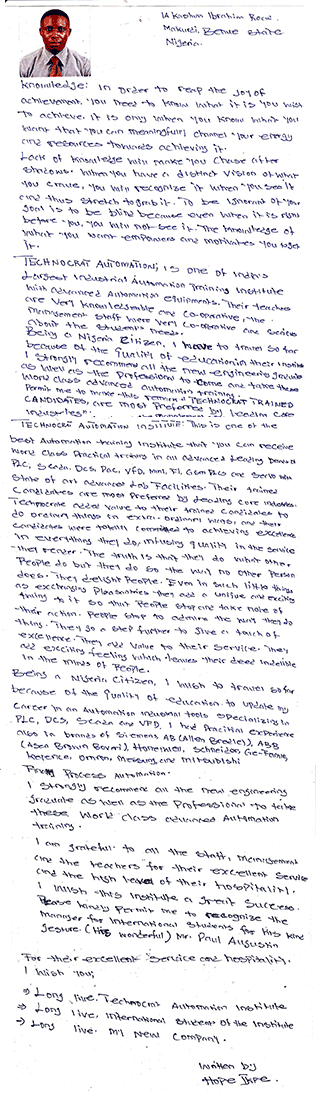 14 Kashim Ibrahim Road,
Makurdi, Benue State
Nigeria.
Knowledge: In order to reap the joy of
achievement, you need to know what it is you wish
to achieve. It is only when you know what you
want that you can meaningfully channel your energy
and resources towards achieving it.
Lack of knowledge will make you chase after
shadows. When you have a distinct vision of what
you crave, you will recognize it when you see it
and thus stretch to grab it. To be ignorant of your
goal is to be blind because even when it is right
before you, you will not see it. The knowledge of
what you want empowers and motivates you to get
it.
TECHNOCRAT AUTOMATION; is one of India's
Largest Industrial Automation Training Institute
with advanced Automation equipments. Their teachers
are very knowledgeable and co-operative, the
Management staff were very co-operative and serious
about the students needs.
Being a Nigeria Citizen, I have to travel so far
because of the quality of education in their Institute
I strongly recommend all the new engineering graduate
as well as the Professional to come and take these
World class advanced automation training.
Permit me to make this remark "TECHNOCRAT TRAINED
CANDIDATES, are most preferred by leading core
industries".
TECHNOCRAT AUTOMATION INSTITUTE: This is one of the
best Automation training Institute that you can receive
World Class Practical training in all advanced Leading
PLC, Scada, Dcs, Pac, VFD, HMI, FI, Gsm Pacs and Servo with
State of art advanced Lab Facilities. Their trained
Candidates are most Preferred by Leading core industries.
Technocrat added Value to their trained Candidates to
do ordinary things in extra-ordinary ways, and their
Candidates were totally committed to achieving excellence
in everything they do, infusing quality in the service
they render. The truth is that they do what other
People do but they do so the way no other person
does. They delight People. Even in such little things
as exchanging pleasantries they add a unique and exciting
thing to it so that People stop and take note of
their action. People stop to admire the way they do
thing. They go a step further to give a touch of
excellence. They add value to their service. They
add exciting feeling which leaves their deed indelible
in the minds of People.
Being a Nigeria Citizen, I wish to travel so far
because of the quality of education to update my
career in an Automation industrial tools specializing in
PLC, DCS, Scada and VFD. I had practical experience
also in brands of Siemens AB (Allen Bradley), ABB
(Asea Brown Boveri), Honeywell, Schneider, Ge-Fanuc,
Keyence, Omron, Messung and mitsubishi
Process Automation.
I strongly recommend all the new engineering
graduate as well as the Professional to take
these World class advanced Automation
training.
I am grateful to all the staff, management
and the teachers for their excellent service
and the high level of their hospitality.
I wish this institute a great success.
Please kindly permit me to recognize the
manager for International Students for his kind
gesture (His wonderful) Mr. Paul Augustin
For their excellent service and hospitality.
I wish you;
⇒ Long live. Technocrat Automation Institute
⇒ Long live. International Student of the Institute
⇒ Long live. My New Company.
Written by
Hope